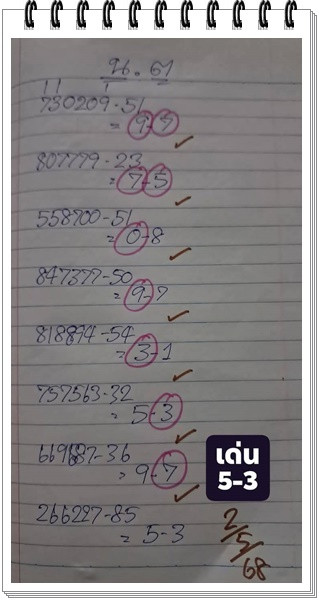 น.ต
730209-51
= 9-7
807779-23
= 7-5
558700-51
= 0-8
847377-50
= 9-7
818894-54
= 3-1
757563-32
= 5-3
669687-36
= 9-7
เด่น
5-3
266227-85
= 5-3
2/5/68